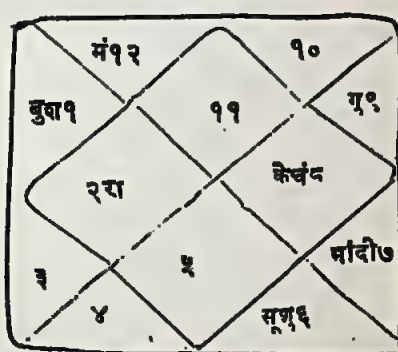 मं१२ १०
बुश१ ११ गु९
२रा केचं८
३ ५ मांदी७
४ सूशु६